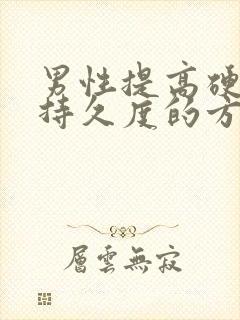 男性提高硬
持久度的方
層雲無寂